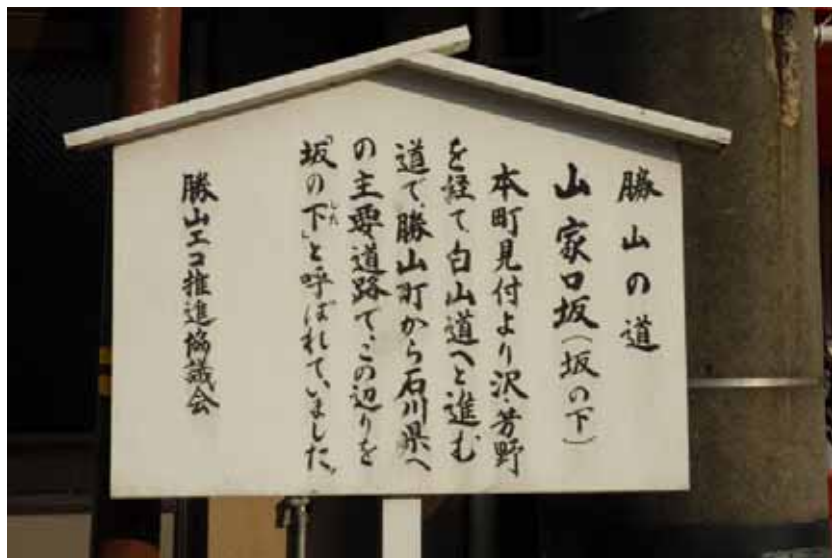 勝山の道
山家口坂(坂の下)
本町見付より沢・芳野
を経て、白山道へと進む
道で、勝山町から石川県へ
の主要道路で、この辺りを
「坂の下」と呼ばれていました。
した
勝山エコ推進協議会